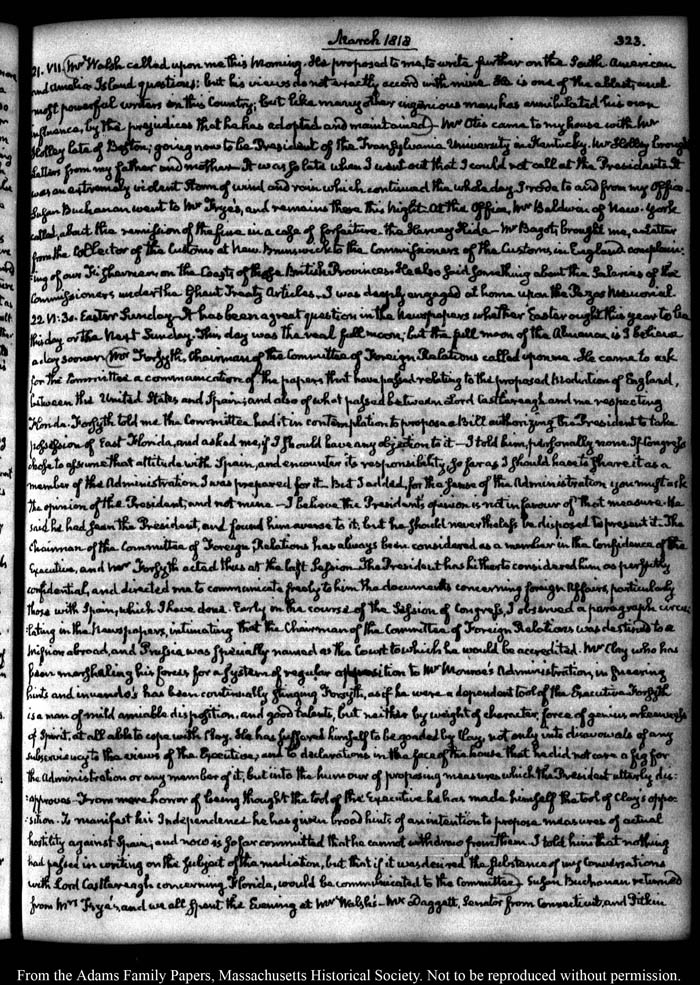 March 1818
323.
21. VII. Mr Walsh called upon me this Morning. He proposed to me, to write further on the South American
and Amelia Island questions; but his views do not exactly accord with mine. He is one of the ablest, and
most powerful writers in this Country; but like many other ingenious men, has annihilated his own
influence, by the prejudices that he has adopted and maintained. Mr Otis came to my house with Mr
Holley late of Boston; going now to be President of the Transylvania University in Kentucky. Mr Holley brought
Letters from my father and mother. It was so late when I went out that I could not call at the Presidents. It
was an extremely violent Storm of wind and rain which continued the whole day. I rode to and from my Office.
Susan Buchanan went to Mr Frye's, and remains there this Night. At the Office, Mr Baldwin of New-York
called, about the remission of the fine in a case of forfeiture. the Harvey Hide. Mr Bagot, brought me, a Letter
from the Collector of the Customs at New Brunswick to the Commissioners of the Customs in England complain-
ing of our Fishermen, on the Coasts of those British Provinces. He also said something about the Salaries of the
Commissioners under the Ghent Treaty Articles. I was deeply engaged at home upon the Pizarro Memorial.
22. VI:30. Easter Sunday. It has been a great question in the Newspapers whether Easter ought this year to be
this day or the Next Sunday. This day was the real full moon; but the full moon of the Almanac is I believe
a day sooner. Mr Forsyth, Chairman of the Committee of Foreign Relations called upon me. He came to ask
for the Committee a communication of the papers that have passed relating to the proposed Mediation of England,
between the United States and Spain; and also of what passed between Lord Castlereagh and me respecting
Florida. Forsyth told me the Committee had it in contemplation to propose a Bill authorizing the President to take
possession of East Florida, and asked me, if I should have any objection to it — I told him, personally none. If Congress
chose to assume that attitude with Spain, and encounter its responsibility, so far as I should have to share it as a
member of the Administration I was prepared for it. But I added, for the sense of the Administration you must ask
the opinion of the President, and not mine. — I believe the President's opinion is not in favour of that measure. He
said he had seen the President, and found him averse to it, but he should nevertheless be disposed to present it. The
Chairman of the Committee of Foreign Relations has always been considered as a member in the Confidence of the
Executive, and Mr Forsyth acted thus at the last Session. The President has hitherto considered him as perfectly
confidential, and directed me to communicate freely to him the documents concerning foreign Affairs, particularly
those with Spain, which I have done. Early in the course of the Session of Congress I observed a paragraph circu-
lating in the Newspapers, intimating that the Chairman of the Committee of Foreign Relations was destined to a
mission abroad, and Prussia was specially named as the Court to which he would be accredited. Mr Clay who has
been marshaling his forces for a System of regular opposition to Mr Monroe's Administration, in sneering
hints and inuendo's has been continually stinging Forsyth, as if he were a dependent tool of the Executive. Forsyth
is a man of mild amiable disposition, and good talents, but neither by weight of character, force of genius or keenness
of Spirit, at all able to cope with Clay. He has suffered himself to be goaded by Clay, not only into disavowals of any
subserviency to the views of the Executive, and to declarations in the face of the house that he did not care a fig for
the Administration or any member of it; but into the humour of proposing measures which the President utterly dis-
approves. From mere horror of being thought the tool of the Executive he has made himself the tool of Clay's oppo-
sition. To manifest his Independence he has given broad hints of an intention to propose measures of actual
hostility against Spain, and now is so far committed that he cannot withdraw from them. I told him that nothing
had passed in writing on the subject of the mediation, but that if it was desired the Substance of my Conversations
with Lord Castlereagh concerning Florida, would be communicated to the Committee. Susan Buchanan returned
from Mrs Frye's, and we all spent the Evening at Mr Walsh's — Mr Daggett, Senator from Connecticut, and Pitkin
From the Adams Family Papers, Massachusetts Historical Society. Not to be reproduced without permission.